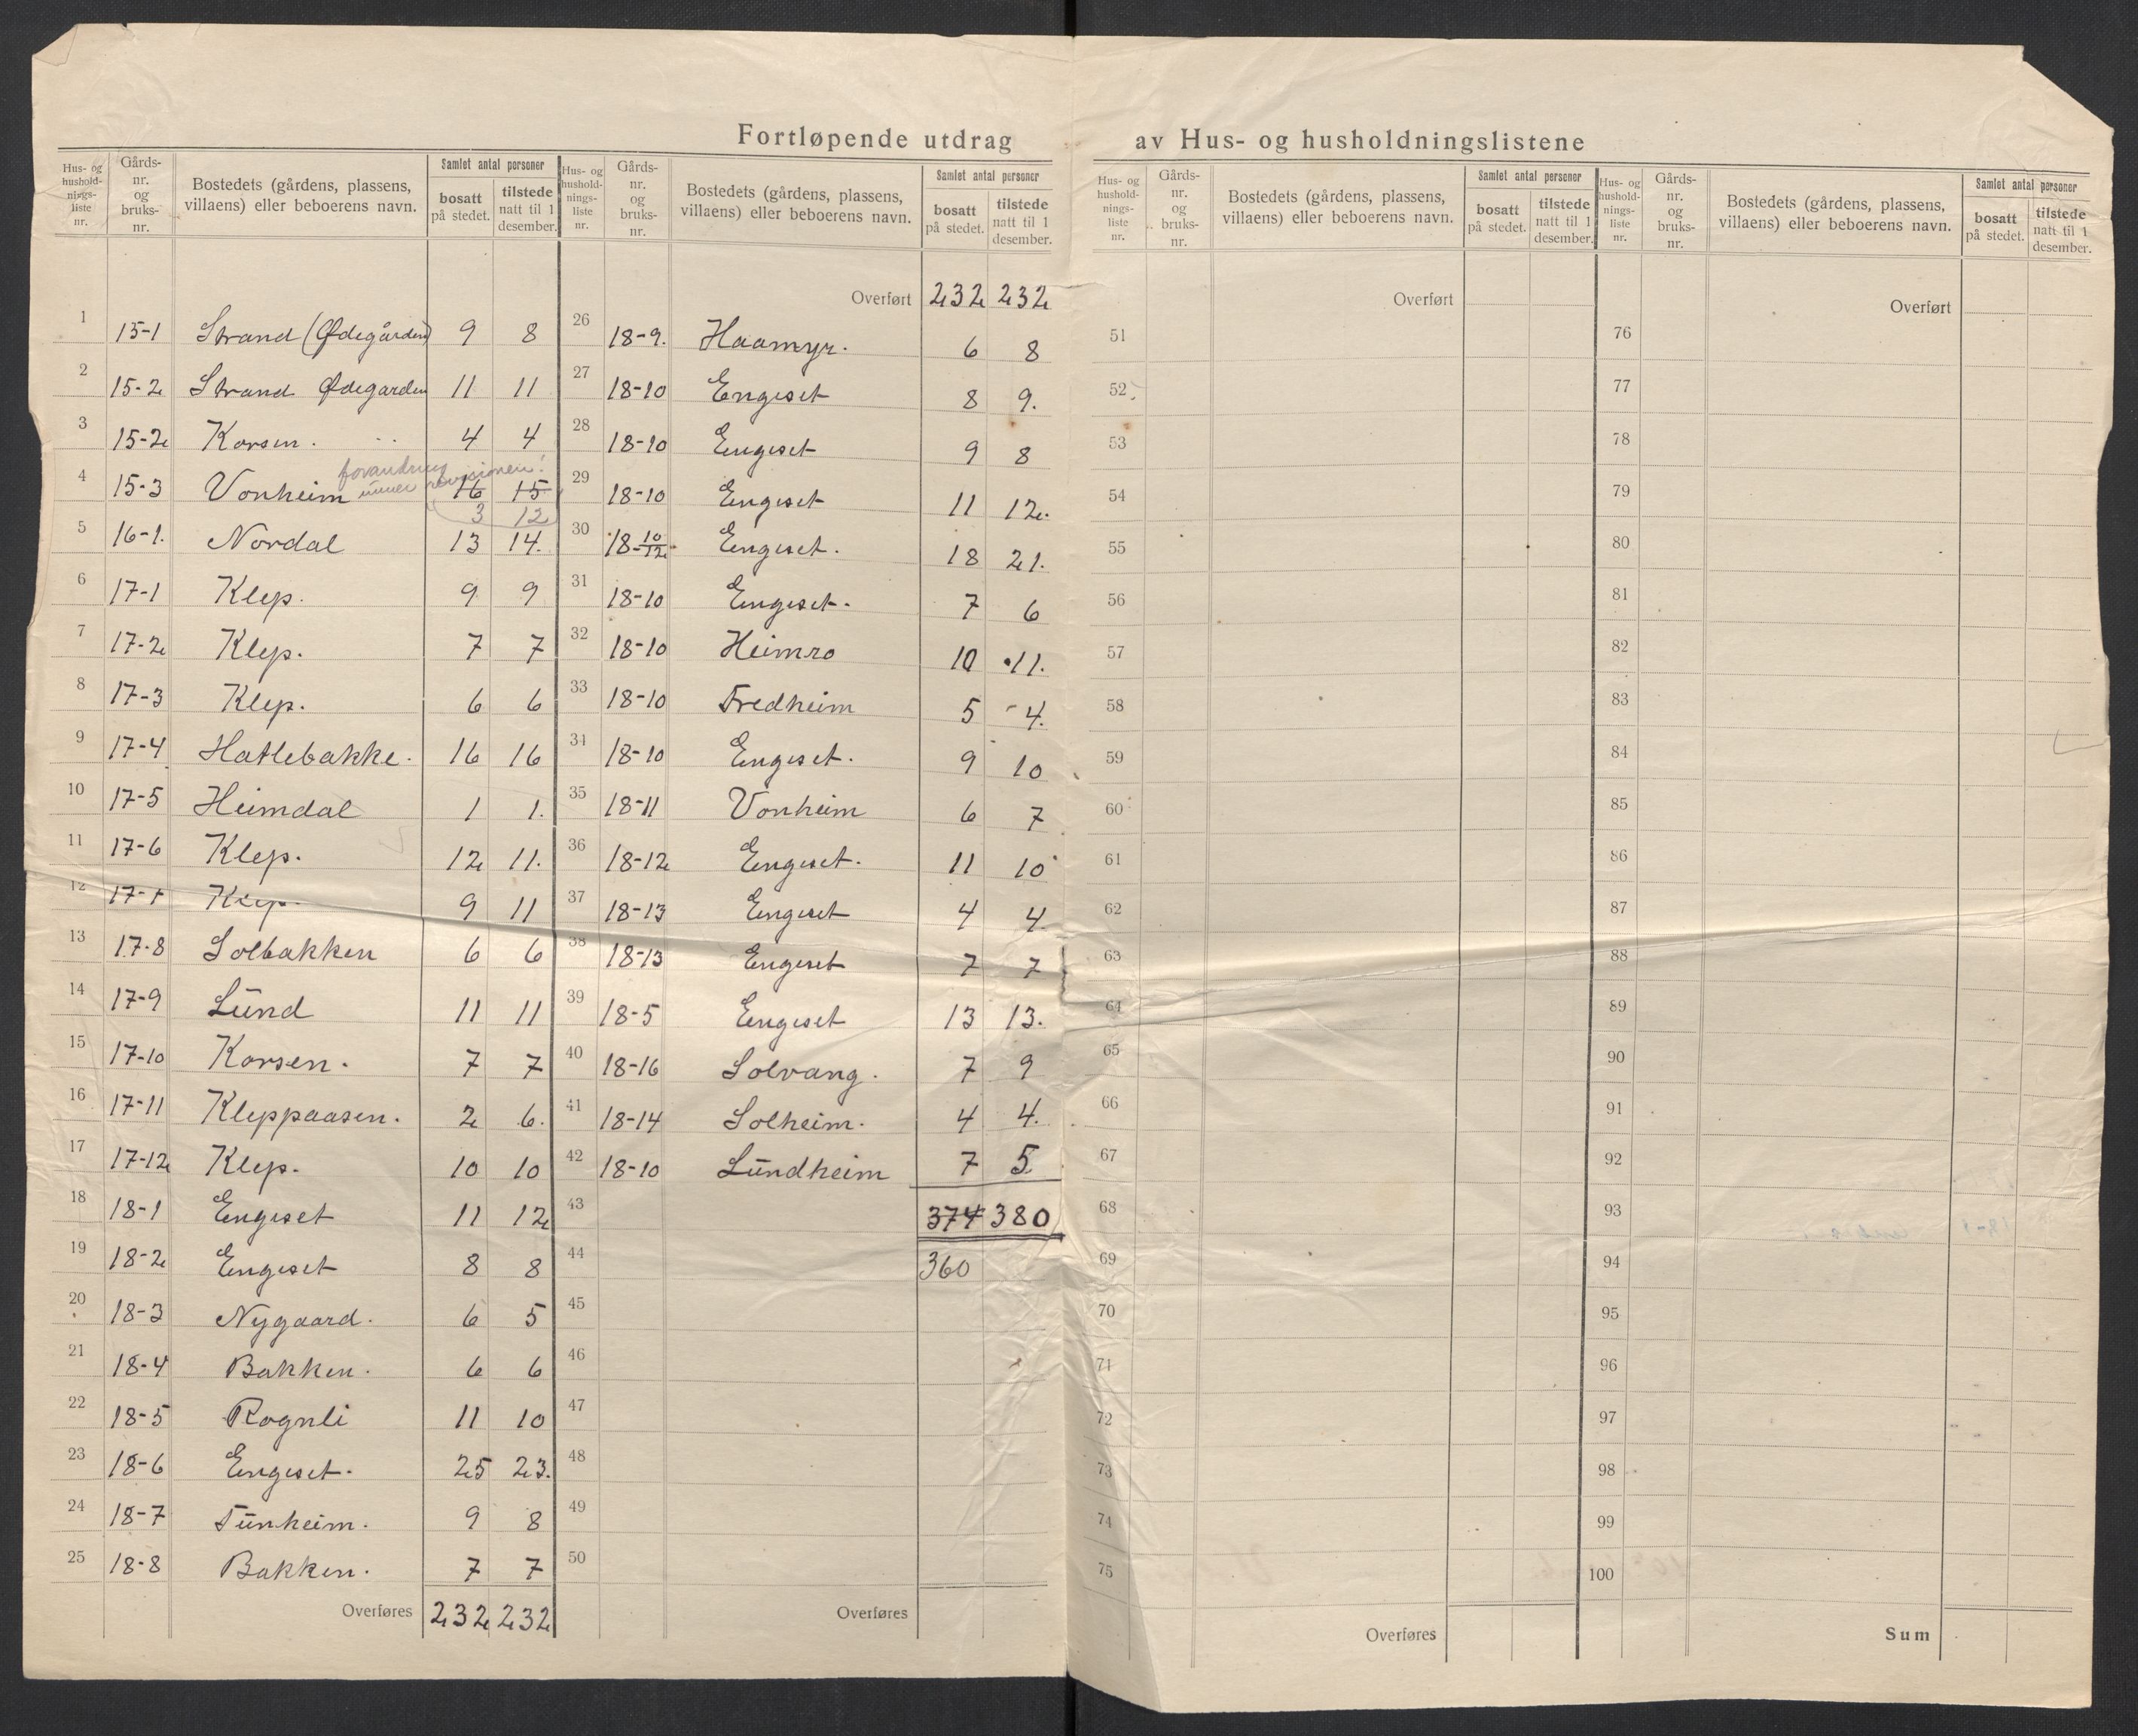 Fortløpende utdrag av Hus- og husholdningslistene
Hus- og hushold-nings-liste nr. | Gårds-nr. og bruks-nr. | Bostedets (gårdens, plassens, villaens) eller beboerens navn. | Samlet antal personer | bosatt på stedet. | tilstede natt til 1 desember.
1 15-1 Strand (Ødegården) 9 8
2 15-2 Strand Ødegarden 11 11
3 15-2 Korsen. 4 4
forandring under revisionen!
4 15-3 Vonheim 16 15
3 12
5 16-1. Nordal 13 14.
6 17-1 Klep. 9 9
7 17-2 Klep. 7 7
8 17-3 Klep. 6 6
9 17-4 Hatlebakke. 16 16
10 17-5 Heimdal 1 1.
11 17-6 Klep. 12 11.
12 Klep. 9 11
13 17-8 Solbakken 6 6
14 17-9 Lund 11 11
15 17-10 Korsen. 7 7
16 17-11 Kleppaasen. 2 6.
17 17-12 Klep. 10 10
18 18-1 Engeset 11 12
19 18-2 Engeset 8 8
20 18-3 Nygaard. 6 5
21 18-4 Bakken. 6 6
22 18-5 Rognli 11 10
23 18-6 Engeset. 25 23.
24 18-7 Tunheim. 9 8
25 18-8 Bakken. 7 7
Overføres 232 232
Hus- og hushold-nings-liste nr. | Gårds-nr. og bruks-nr. | Bostedets (gårdens, plassens, villaens) eller beboerens navn. | Samlet antal personer | bosatt på stedet. | tilstede natt til 1 desember.
Overført 232 232
26 18-9. Haamyr. 6 8
27 18-10 Engeset 8 9.
28 18-10 Engeset 9 8
29 18-10 Engeset 11 12.
30 18-10/12 Engeset. 18 21.
31 18-10 Engeset. 7 6
32 18-10 Heimro 10 11.
33 18-10 Fredheim 5 4.
34 18-10 Engeset. 9 10
35 18-11 Vonheim 6 7
36 18-12 Engeset. 11 10
37 18-13 Engeset 4 4.
38 18-13 Engeset 7 7
39 18-5 Engeset 13 13.
40 18-16 Solvang. 7 9
41 18-14 Solheim. 4 4.
42 18-10 Lundheim 7 5
43 374 380
44 360
45
46
47
48
49
50
Overføres
Hus- og hushold-nings-liste nr. | Gårds-nr. og bruks-nr. | Bostedets (gårdens, plassens, villaens) eller beboerens navn. | Samlet antal personer | bosatt på stedet. | tilstede natt til 1 desember.
Overført
51
52
53
54
55
56
57
58
59
60
61
62
63
64
65
66
67
68
69
70
71
72
73
74
75
Overføres
Hus- og hushold-nings-liste nr. | Gårds-nr. og bruks-nr. | Bostedets (gårdens, plassens, villaens) eller beboerens navn. | Samlet antal personer | bosatt på stedet. | tilstede natt til 1 desember.
Overført
76
77
78
79
80
81
82
83
84
85
86
87
88
89
90
91
92
93
94
95
96
97
98
99
100
Sum